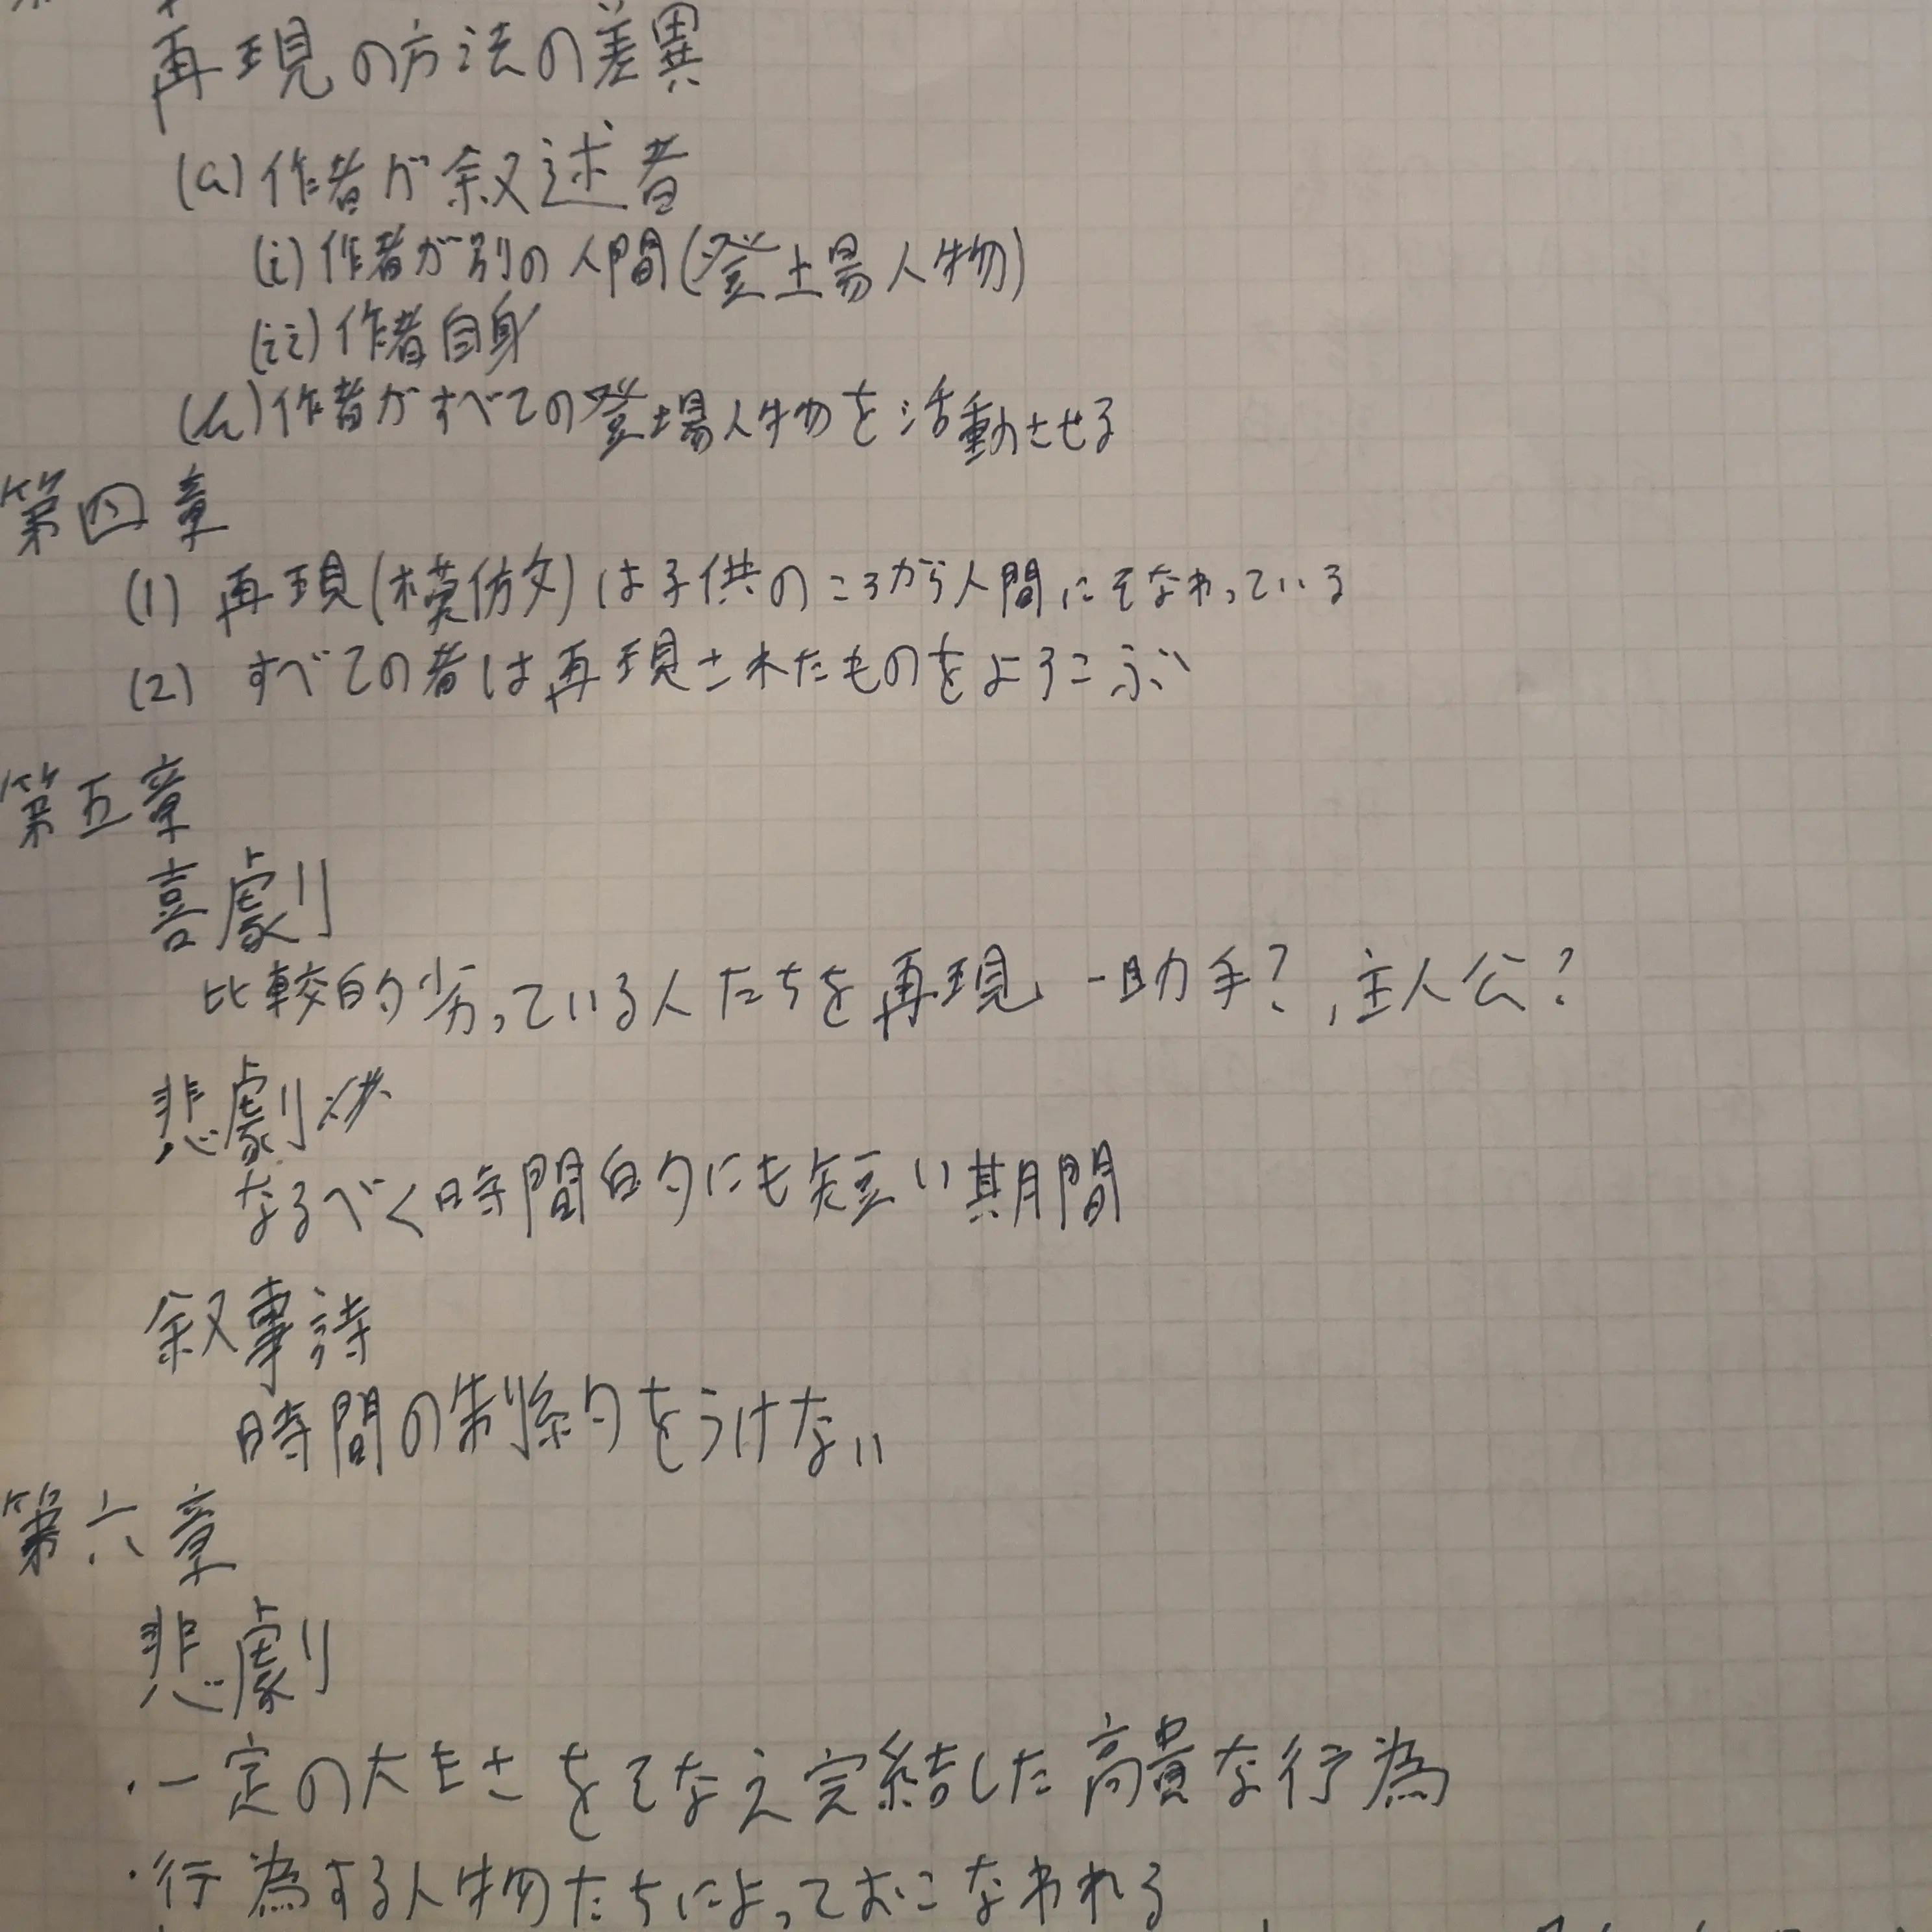 再現の方法の差異
(a)作者が叙述者
(i)作者が別の人間(登場人物)
(ii)作者自身
(b)作者がすべての登場人物を活動させる
第四章
(1) 再現(模倣)は子供のころから人間にそなわっている
(2) すべての者は再現されたものをよろこぶ
第五章
喜劇
比較的劣っている人たちを再現 - 助手?,主人公?
悲劇
なるべく時間的にも短い期間
叙事詩
時間の制約をうけない
第六章
悲劇
・一定の大きさをそなえ完結した高貴な行為
・行為する人物たちによっておこなわれる